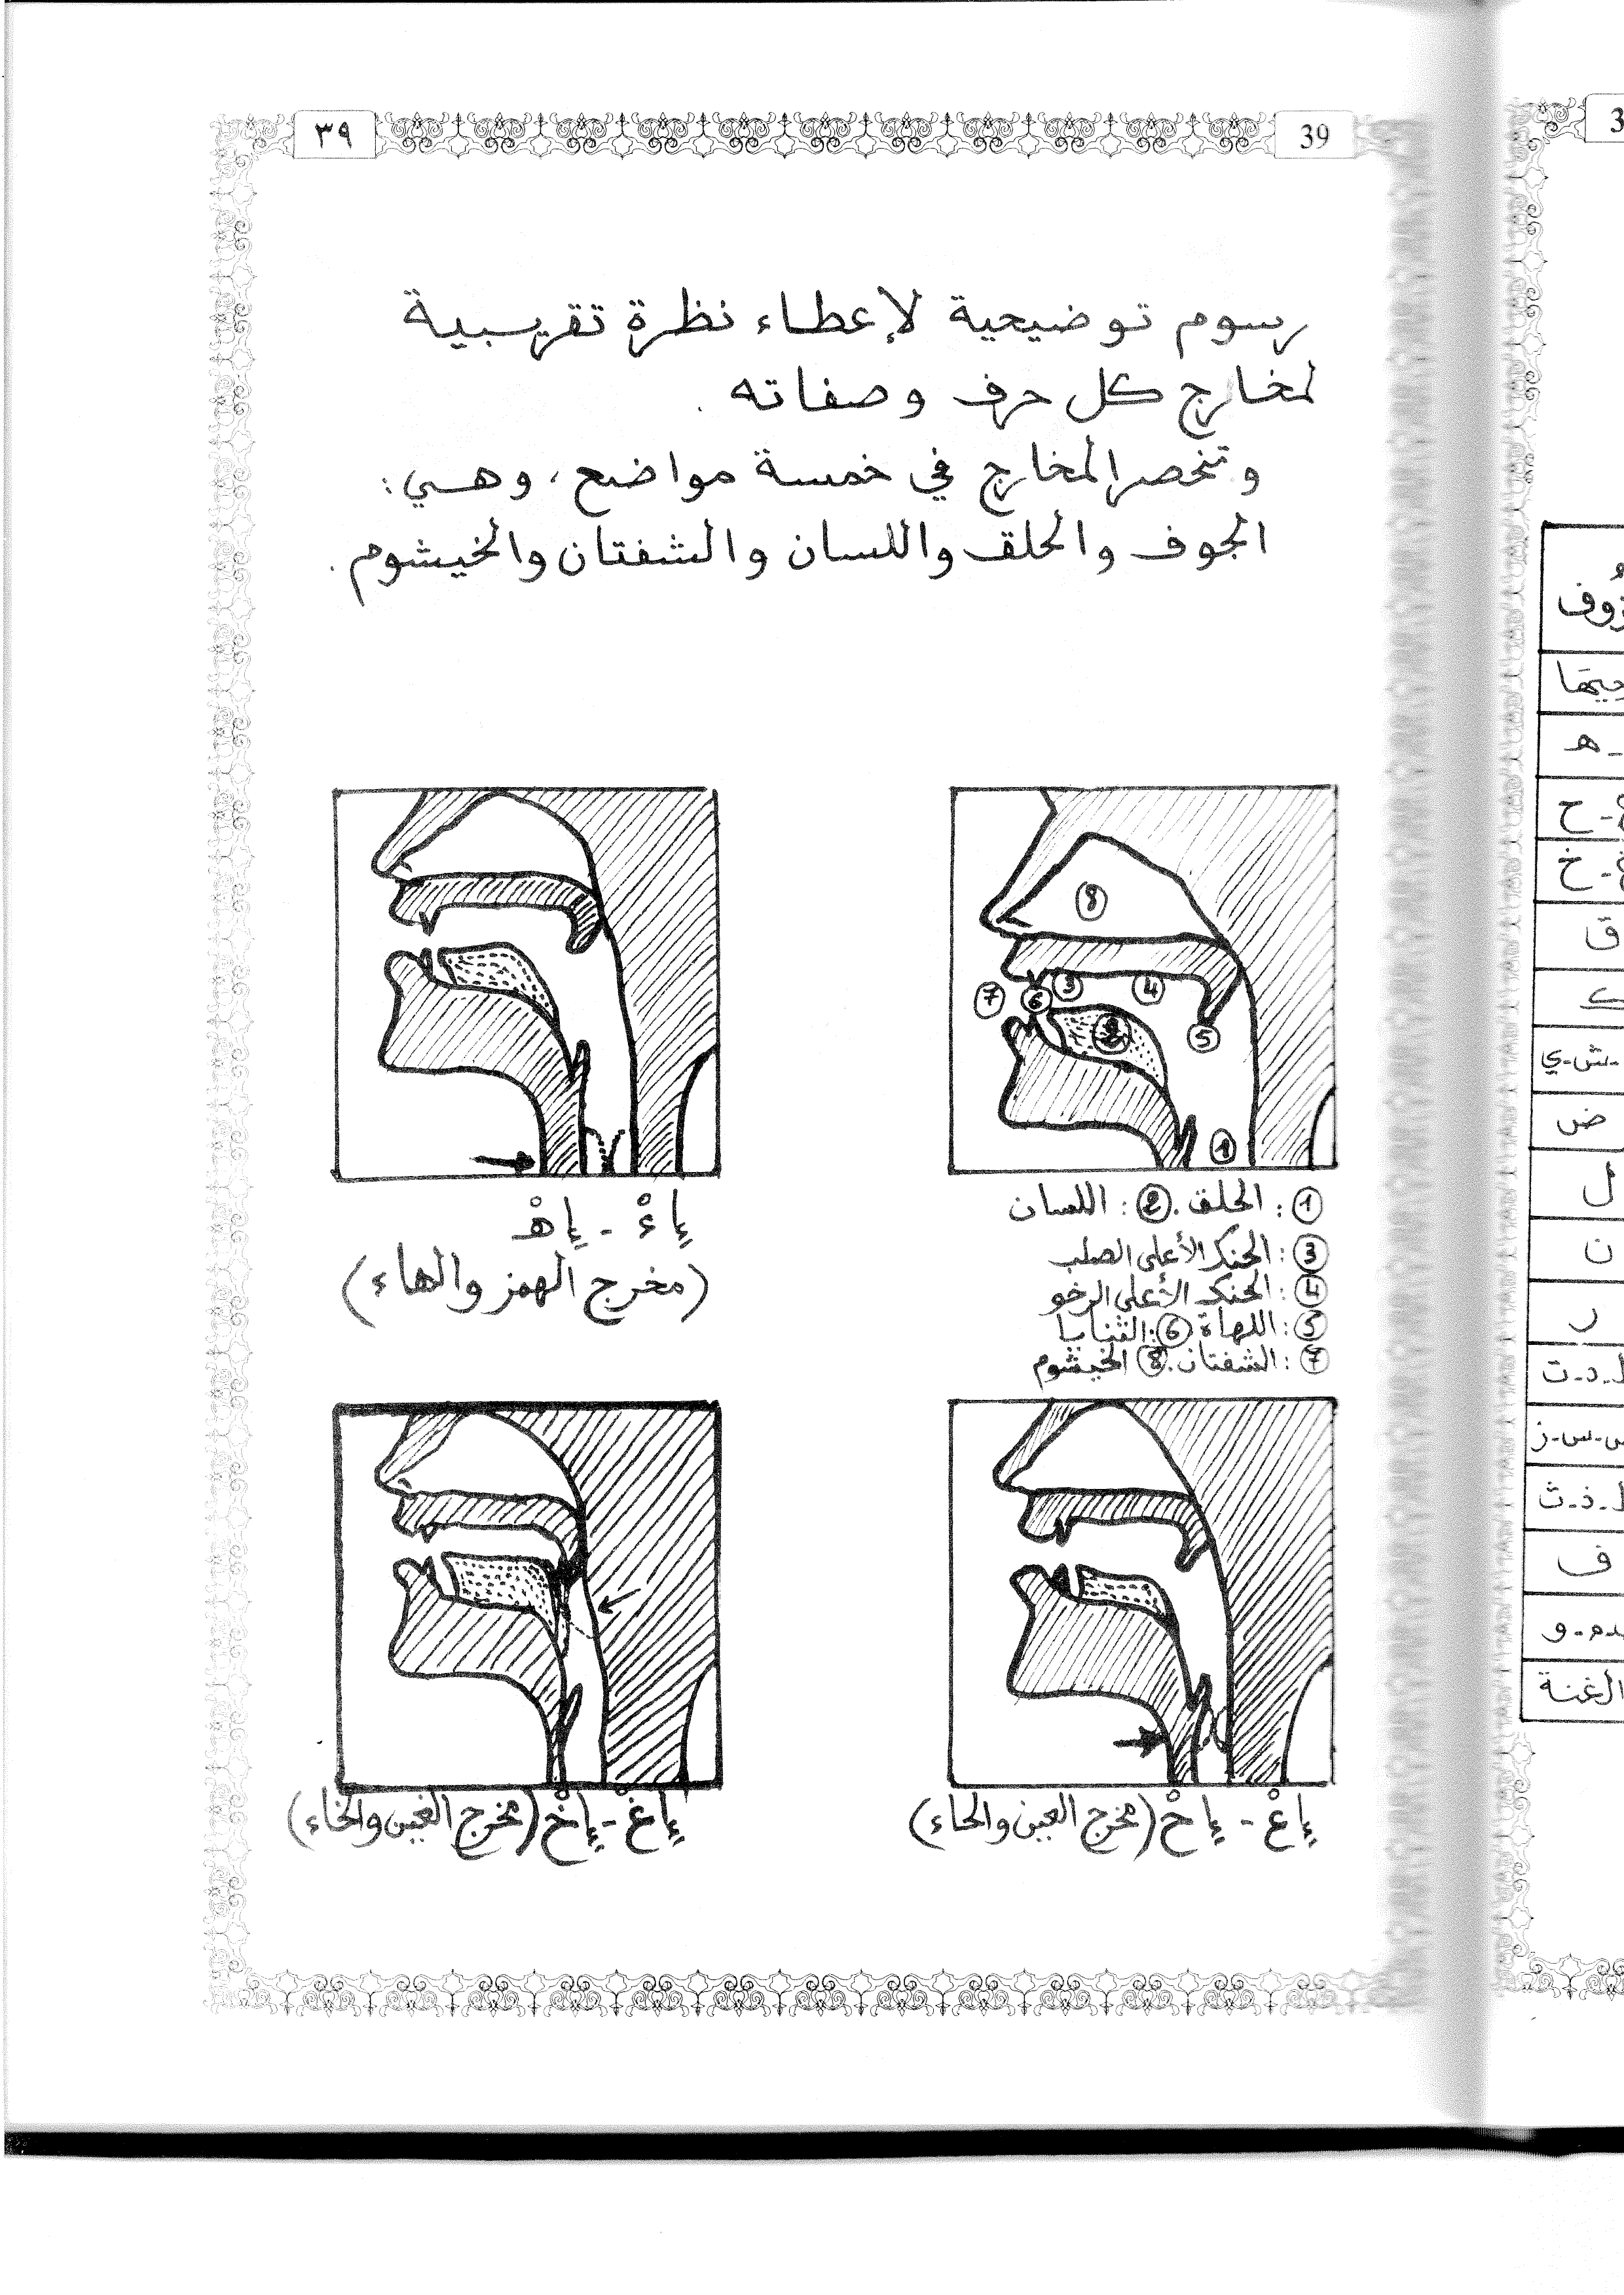 39
٣٩
رسوم توضيحية لإعطاء نظرة تقريبية
لمخارج كل حرف وصفاته.
وتنحصر المخارج في خمسة مواضع، وهي:
الجوف والحلق واللسان والشفتان والخيشوم.
8
7 6 3 4
2 5
1
1: الحلق. 2: اللسان
3: الحنك الأعلى الصلب
4: الحنك الأعلى الرخو
5: اللهاة. 6: الثنايا
7: الشفتان. 8 الخيشوم
إِءْ - إِهْ
(مخرج الهمز والهاء)
إِعْ - إِحْ (مخرج العين والحاء)
إِغْ - إِخْ (مخرج الغين والخاء)
3
هـ
ح
خ
ض
ل
ن
ر
د-ت
س-ز
ذ-ث
ف
و
الغنة